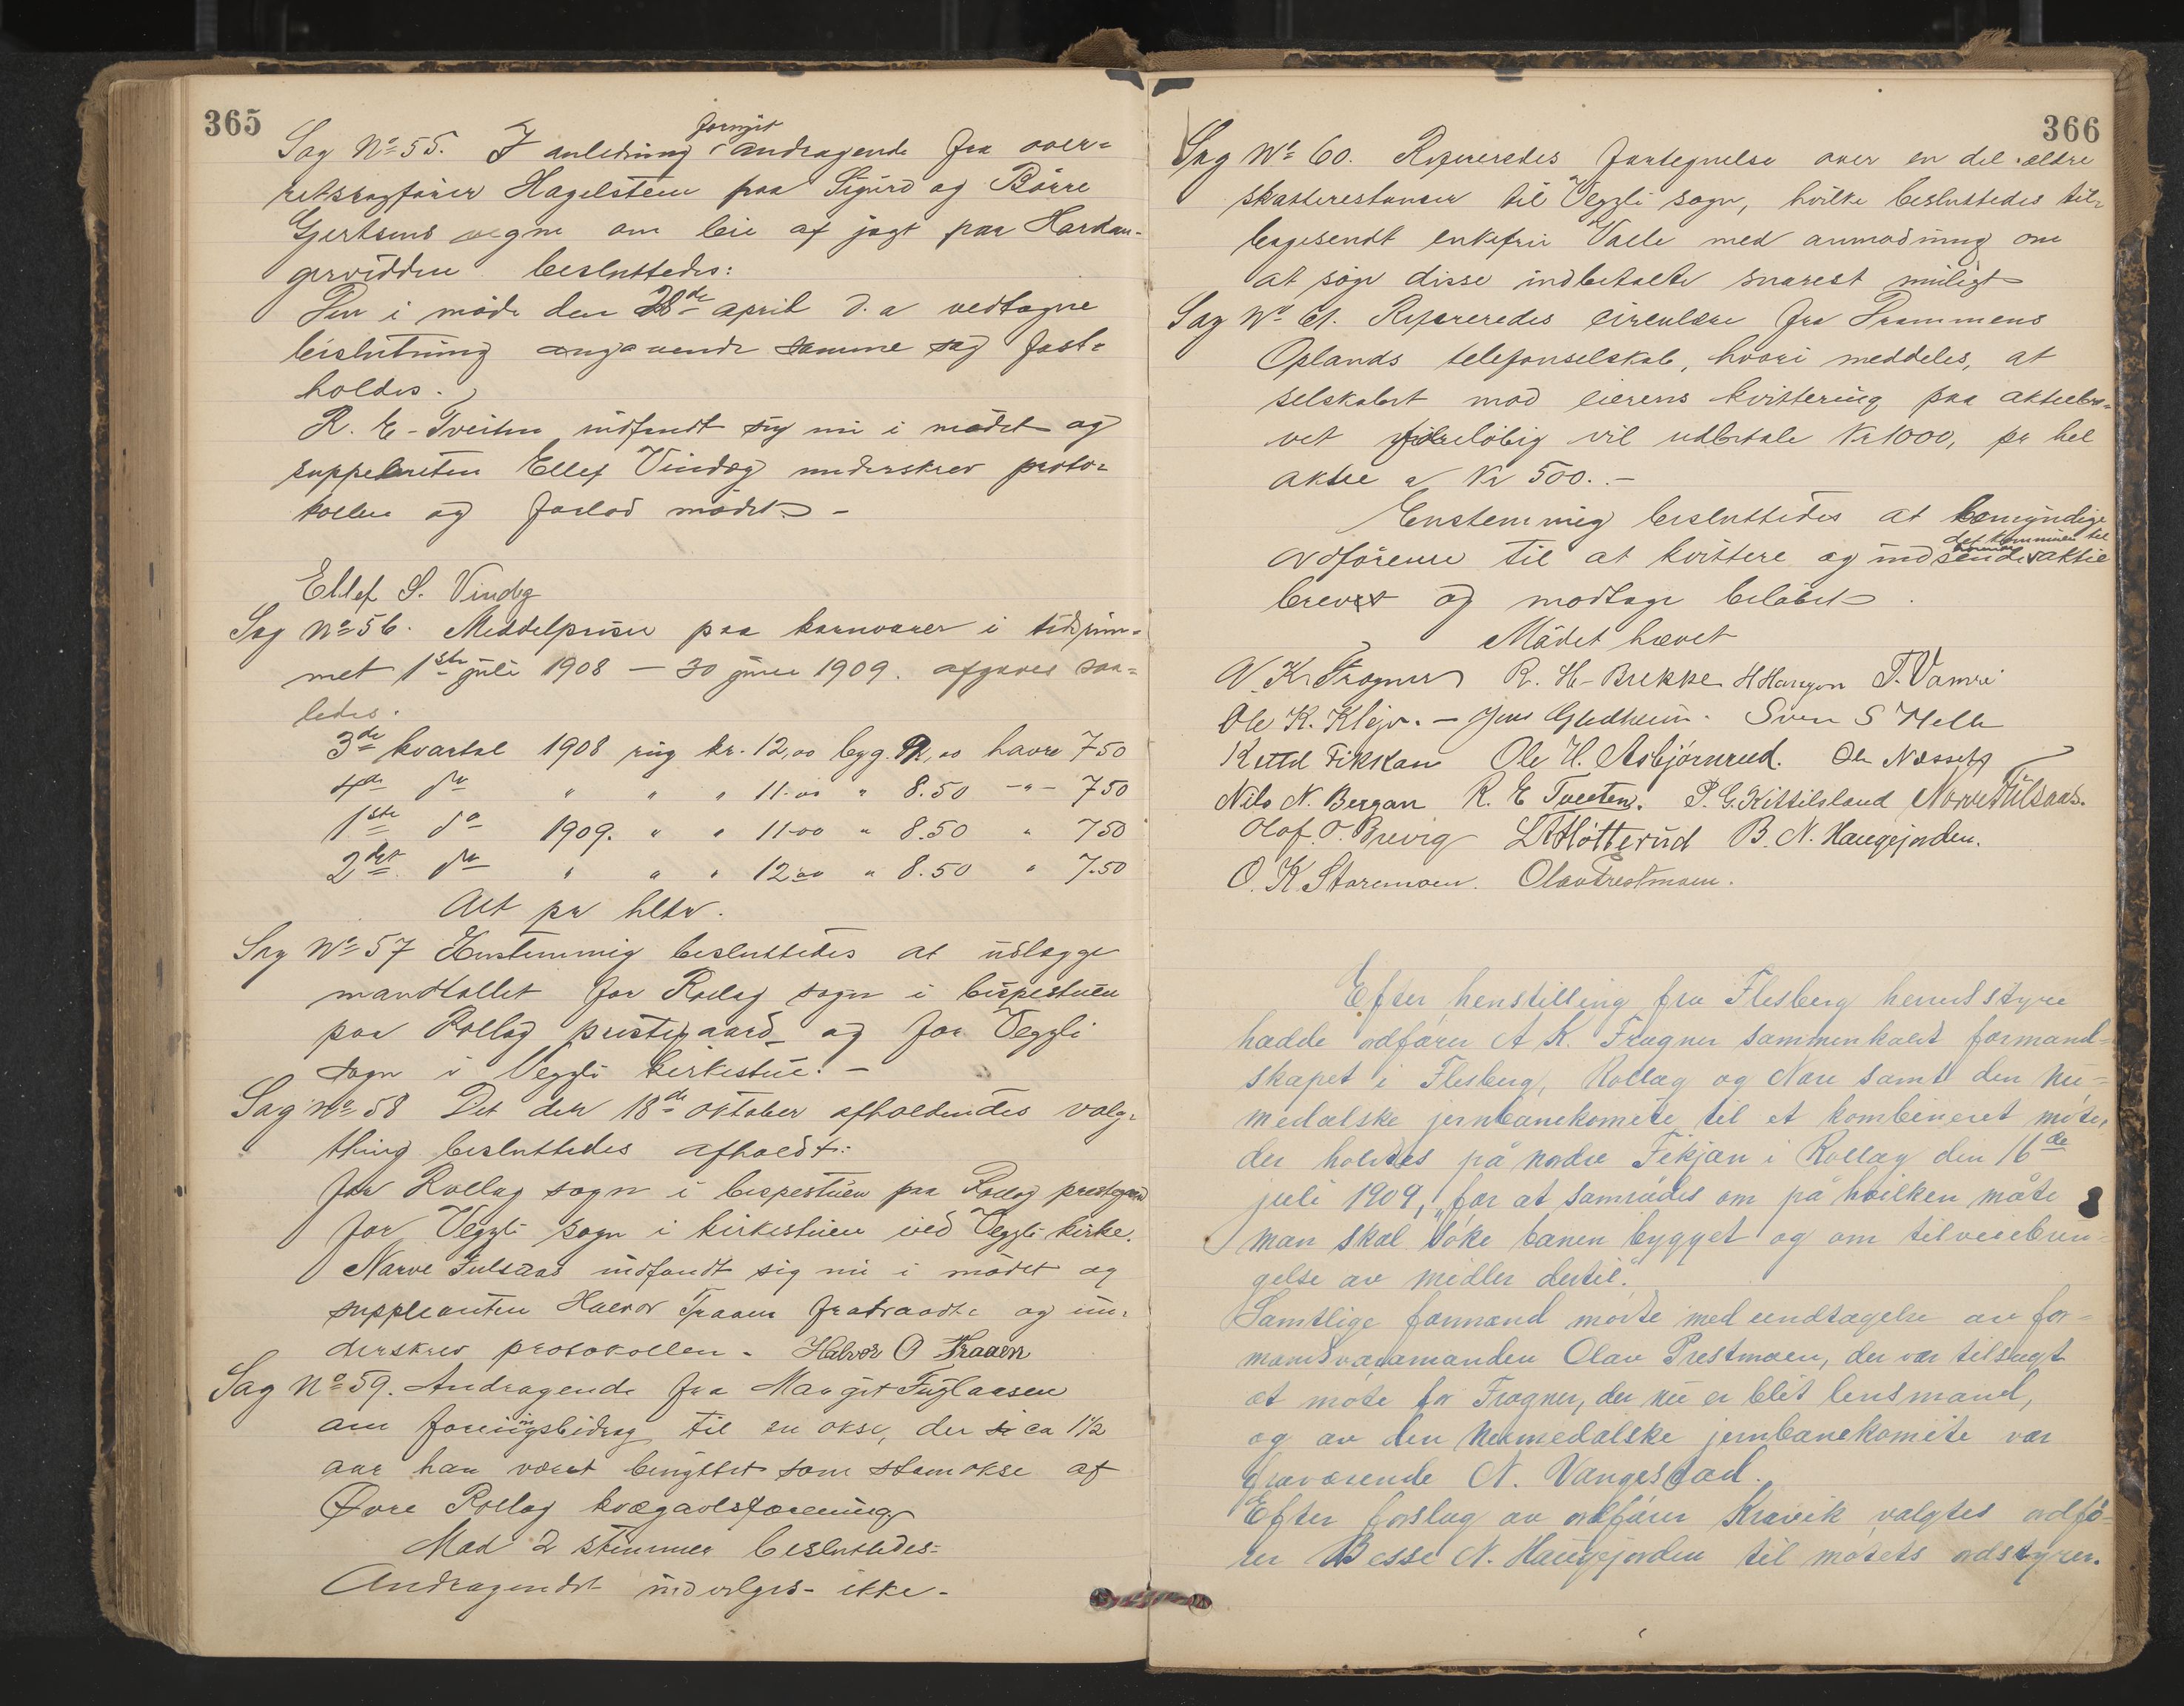 365
Sag No 55. I anledning fornyet andragende fra over-
retssagfører Hagelsteen paa Sigurd og Børre
Gjertsens vegne om leie af jagt paa Hardan-
gervidden besluttedes:
Den i møde den 28de april d. a vedtagne
beslutning angaaende samme sag fast-
holdes.
R. E. Tveiten indfandt sig nu i mødet og
suppleanten Ellef Vindeg underskrev proto-
kollen og forlod mødet. -
Ellef S. Vindeg
Sag No 56. Middelpriser paa kornvarer i tidsrum-
met 1ste juli 1908 — 30 juni 1909. afgaves saa-
ledes.
3de kvartal 1908 rug kr. 12,00 byg. 9,00 havre 750
4de do " " " 11.00 " 8.50 -"- 750
1ste do 1909. " " 11.00 " 8.50 " 750
2det do " " " 12.00 " 8.50 " 7.50
Alt pr hltr.
Sag No 57 Enstemmig besluttedes at udlægge
mandtallet for Rollag sogn i bispestuen
paa Rollag prestegaard og for Veggli
sogn i Veggli kirkestue. -
Sag No 58 Det den 18de oktober afholdendes valg-
thing besluttedes afholdt:
for Rollag sogn i bispestuen paa Rollag prestegaard
for Veggli sogn i kirkestuen ved Veggli kirke.
Narve Julsaas indfandt sig nu i mødet og
suppleanten Halvor Traaen fratraadte og un-
derskrev protokollen. Halvor O Traaen
Sag No 59. Andragende fra Margit Fuglaasen
om foringsbidrag til en okse, der ca 1½
aar har været benyttet som stamokse af
Øvre Rollag kvægavlsforening
Mod 2 stemmer besluttedes:
Andragendet indvilges ikke.
366
Sag No 60. Refereredes fortegnelse over en del ældre
skatterestancer til Veggli sogn, hvilke besluttedes til-
bagesendt enkefru Valle med anmodning om
at søge disse indbetalte snarest muligt
Sag No 61. Refereredes cirkulære fra Drammens
Oplands telefonselskab, hvori meddeles, at
selskabet mod eierens kvittering paa aktiebre-
vet foreløbig vil udbetale Kr 1000, pr hel
aktie a Kr 500. -
Enstemmig besluttedes at bemyndige
ordføreren til at kvittere og indsende det kommunen tilhørende aktie
brevet og modtage beløbet.
Mødet hævet
A. K. Fragner R. H. Brekke H Haugen T. Vamre
Ole K. Klejv. — Jens Gladheim. Sven S Melle
Kittil Fikkan Ole H. Asbjørnrud. Ole Næsset
Nils N. Bergan R. E Tveten. P. G. Kittilsland Narve Julsaas.
Olof O. Brevig L A Høtterud B. N. Haugejorden.
O. K Staremoen. Olav Prestmoen.
Efter henstilling fra Flesberg herredsstyre
hadde ordfører A K. Fragner sammenkaldt formand-
skapet i Flesberg, Rollag og Nore samt den nu-
medalske jernbanekomite til et kombineret møte,
der holdtes på nordre Fikjan i Rollag den 16de
juli 1909, "for at samrådes om på hvilken måte
man skal søke banen bygget og om tilveiebrin-
gelse av midler dertil."
Samtlige formænd møtte med undtagelse av for-
mandsvaramanden Olav Prestmoen, der var tilsagt
at møte for Fragner, der nu er blit lensmand,
og av den numedalske jernbanekomite var
fraværende N. Vangestad.
Efter forslag av ordfører Kravik valgtes ordfø-
rer Besse N. Haugejorden til møtets ordstyrer.